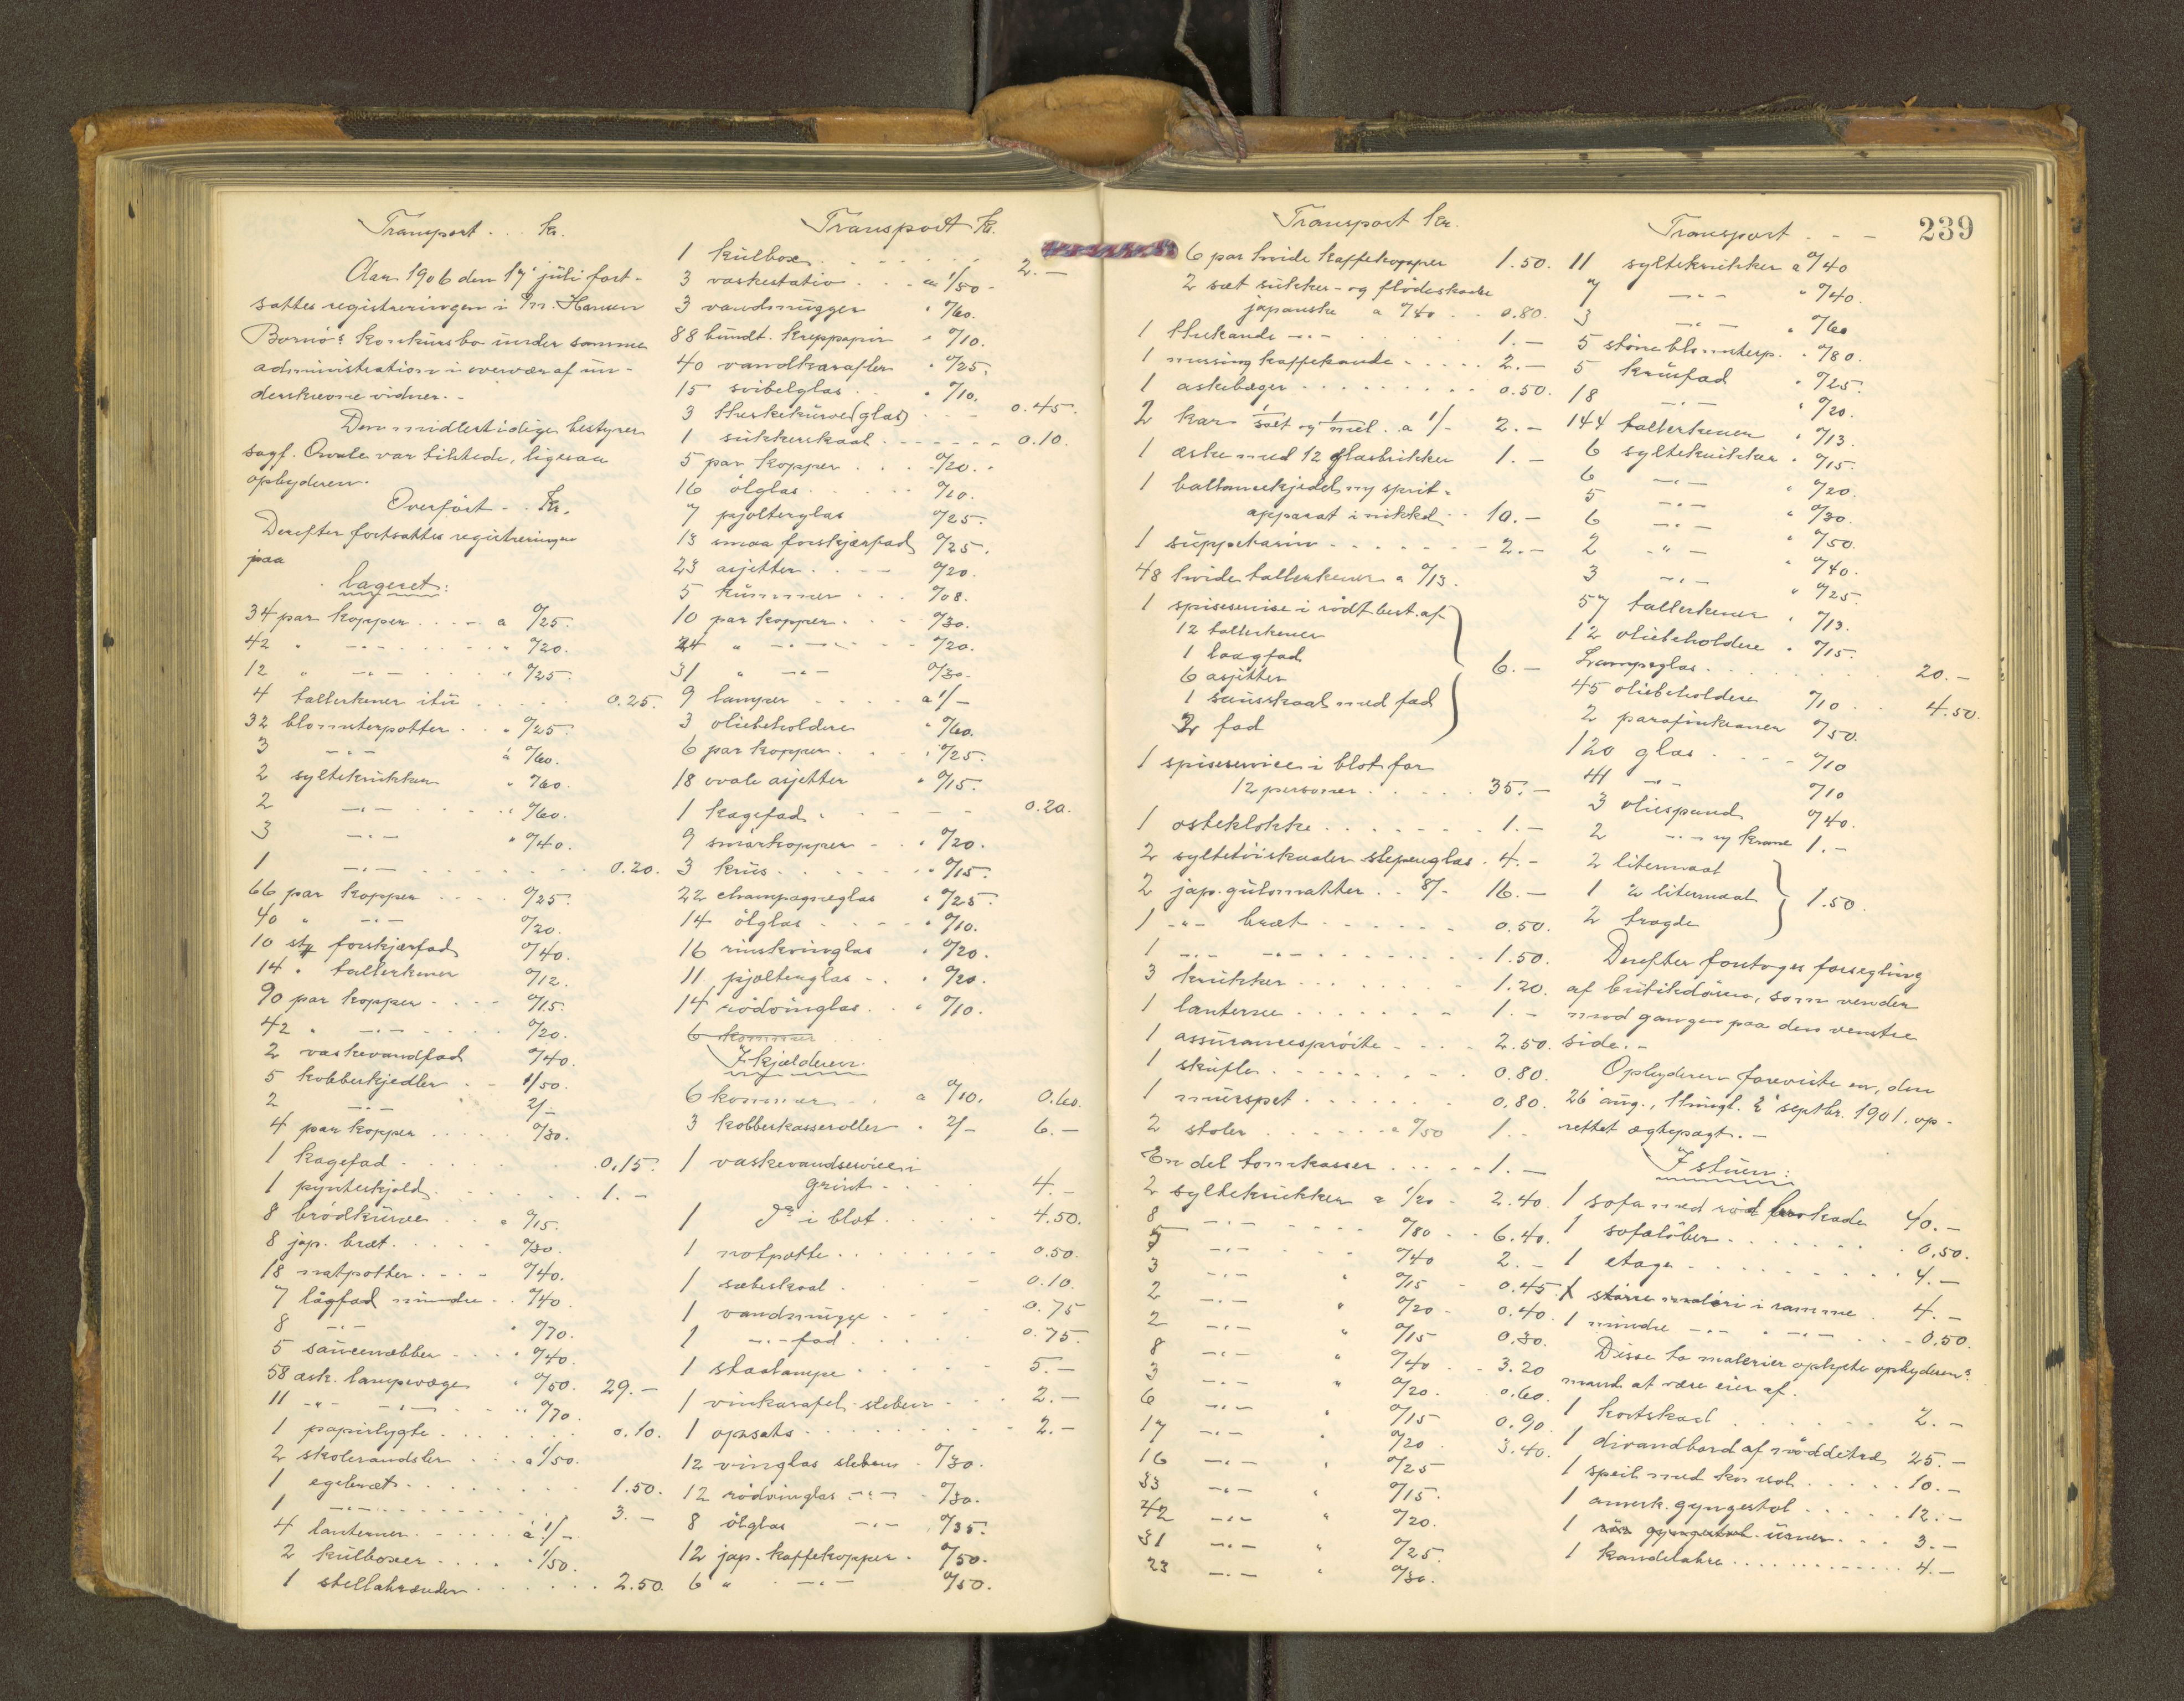 Transport . . . kr.
Aar 1906 den 17' juli fort-
sattes registreringen i Fru Hansen
Bornö's konkursbo under samme
administration i overvær af un-
derskrevne vidner. -
Den midlertidige bestyrer
sagf. Qvale var tilstede, ligesaa
opbyderen.
Overfört - . Kr.
Derefter fortsattes registreringen
paa
lageret:
34 par kopper . . . - a 0/25.
42 " -"- . . . . . " 0/20.
12 " -"- . . . " 0/25.
4 tallerkener itu . . . . . 0.25.
32 blomsterpotter . . " 0/25.
3 -"- a 0/60.
2 syltekrukker " 0/60.
2 -"- . . . . " 0/60.
3 -"- " 0/40.
1 -"- . . . . . . . 0.20.
66 par kopper . . . . 0/25.
40 " -"- 0/20.
10 stk forskjærfad 0/40.
14 " tallerkener 0/12.
90 par kopper . . . . 0/15.
42 " -"- . . . . 0/20.
2 vaskevandfad 0/40.
5 kobberkjedler . - 1/50.
2 -"- 2/-
4 par kopper . . . . 0/30.
1 kagefad . . . . . . . 0.15.
1 pynteskjold . . . . . . 1. -
8 brödkurve . . " 0/15.
8 jap. bræt . . . . . 0/30.
18 natpotter . . . . 0/40.
7 lågfad mindre . . 0/40.
8 -"- " 0/70.
5 saucenebber . . . . 0/40.
58 æsk. lampevæger " 0/50. 29. -
11 -"- -"- . . . " 0/70.
1 papirlygte . . . . . . . 0.10.
2 skolerandsler . . . a 1/50.
1 egebræt . . . . . . . . 1.50.
1 -"- . . . . . . . . 3. -
4 lanterner . . . . . a 1/-
2 kulboxer . . . . . 1/50.
1 stellabrænder . . . . . . 2.50.
Transport Kr.
1 kulbox . . . . . . . 2. -
3 vaskestativ . . . a 1/50 -
3 vandmugger " 0/60.
88 bundt. kreppapir " 0/10.
40 vandkarafler " 0/25.
15 svibelglas . . " 0/10.
3 thuskekurve (glas) . . - 0.45.
1 sukkerskaal . . . . . . 0.10.
5 par kopper . . . . 0/20. .
16 ölglas . . . . . . 0/20.
7 pjolterglas 0/25.
13 smaa forskjærfad 0/25.
23 asjetter . . . - 0/20.
5 kummer . . . 0/08.
10 par kopper . . - 0/30.
24 " -"- . . . 0/20.
31 " -"- 0/30.
9 lamper . . . . a 1/-
3 oliebeholdere " 0/60.
6 par kopper . . . . 0/25.
18 ovale asjetter " 0/15.
1 kagefad . . . . . . 0.20.
9 smörkopper . . . 0/20.
3 krus . . . . . . " 0/15.
22 champagneglas " 0/25.
14 ölglas . . . . " 0/10.
16 rinskvinglas . 0/20.
11 pjolterglas - . . 0/20.
14 rödvinglas . . " 0/10.
6 kommer
I kjælderen.
6 kommer . . a 0/10. 0.60.
3 kobberkasseroller . 2/- 6. -
1 vaskevandservice i
grönt . . . . 4. -
1 do i blot . . . . . . 4.50.
1 natpotte . . . . . . . . 0.50.
1 sæbeskaal . . . - 0.10.
1 vandmugge . . . . 0.75
1 -"- fad . . . . . 0.75.
1 staalampe . . . . . . 5. -
1 vinkarafel sleben . . . 2. -
1 opsats . . . . . . . . . 2. -
12 vinglas slebene . 0/30.
12 rödvinglas -"- 0/30.
8 ölglas -"- 0/35.
12 jap. kaffekopper . 0/50.
6 " -"- 0/50.
Transport kr.
6 par hvide kaffekopper 1.50.
2 sæt sukker- og flödeskaale
japanske a 0/40 . . 0.80.
1 thekande -"- . . . . . 1. -
1 messing kaffekande . . . . 2. -
1 askebæger . . . . . . . . 0.50.
2 kar 1/salt og 1/mel . a 1/- 2. -
1 æske med 12 glasbrikker 1. -
1 ballancekjedel ny sprit-
apparat i nikkel . . 10. -
1 suppeterrin . . . . . . . 2. -
48 hvide tallerkener a 0/13.
1 spiseservise i rödt best. af
12 tallerkener
1 laagfad
6 asjetter
1 sausskaal med fad
2 fad
6. -
1 spiseservice i blot for
12 personer . . . . . 35. -
1 osteklokke . . . . . . 1. -
2 syltetöiskaaler slepenglas . 4. -
2 jap. gulvmatter . . 8/- 16. -
1 -"- bræt . . . . . . 0.50.
1 -"- -"- . . . . . . . 1.50.
3 krukker . . . . . . . . 1.20.
1 lanterne . . . . . . . 1. -
1 assurancespröite . . . 2.50.
1 skuffe . . . . . . . . 0.80.
1 murspet . . . . . . . 0.80.
2 stoler . . . . . . a 0/50 1. -
En del tomkasser . . . . . 1. -
2 syltekrukker a 1/20 - 2.40.
8 -"- . . . . 0/80 . . 6.40.
5 -"- . . . 0/40 2. -
3 -"- " 0/15 - 0.45.
2 -"- " 0/20 - 0.40.
2 -"- " 0/15 0.30.
8 -"- " 0/40 . . 3.20
3 -"- " 0/20. 0.60.
6 -"- " 0/15 0.90.
17 -"- " 0/20 . 3.40.
16 -"- " 0/25
33 -"- " 0/15.
42 -"- " 0/20.
31 -"- " 0/25.
23 -"- " 0/30.
Transport . - -
239
11 syltekrukker a 0/40
7 -"- " 0/40.
3 -"- " 0/60
5 större blomsterp. . 0/80.
5 krusfad " 0/25.
18 -"- " 0/20.
144 tallerkener " 0/13.
6 syltekrukker . 0/15.
6 -"- " 0/20.
5 -"- " 0/30.
6 -"- " 0/50.
2 -"- " 0/40.
3 -"- " 0/25.
57 tallerkener " 0/13.
12 oliebeholdere " 0/15.
Lampeglas . . . . . . . . 20. -
45 oliebeholdere 0/10 . . 4.50.
2 parafinkraner 0/50.
120 glas . . . . 0/10
41 -"- 0/10
3 oliespand 0/40.
2 -"- ny krane 1. -
2 litermaal
1 1/2 litermaal
2 tragde
1.50.
Derefter foretoges forsegling
af butikdören, som vender
mod gangen paa den venstre
side. -
Opbyderen foreviste en, den
26' aug., thingl. 2' septbr. 1901. op-
rettet ægtepagt. -
I stuen:
1 sofa med röd brokade 40. -
1 sofalöber . . . . . . . 0,50.
1 etage . . . . . . . . . . 4. -
1 större maleri i ramme . 4. -
1 mindre -"- " -"- . . . 0,50.
Disse to malerier oplyste opbyderens
mand at være eier af.
1 kortskaal . . . . . . 2. -
1 divandbord af nöddetræ 25. -
1 speil med konsol . . . . . 10. -
1 amerk. gyngestol . . . . . 12. -
1 rör gyngestol . . . 3. -
1 kandelabre . . . . . . . . . . . . 4. -